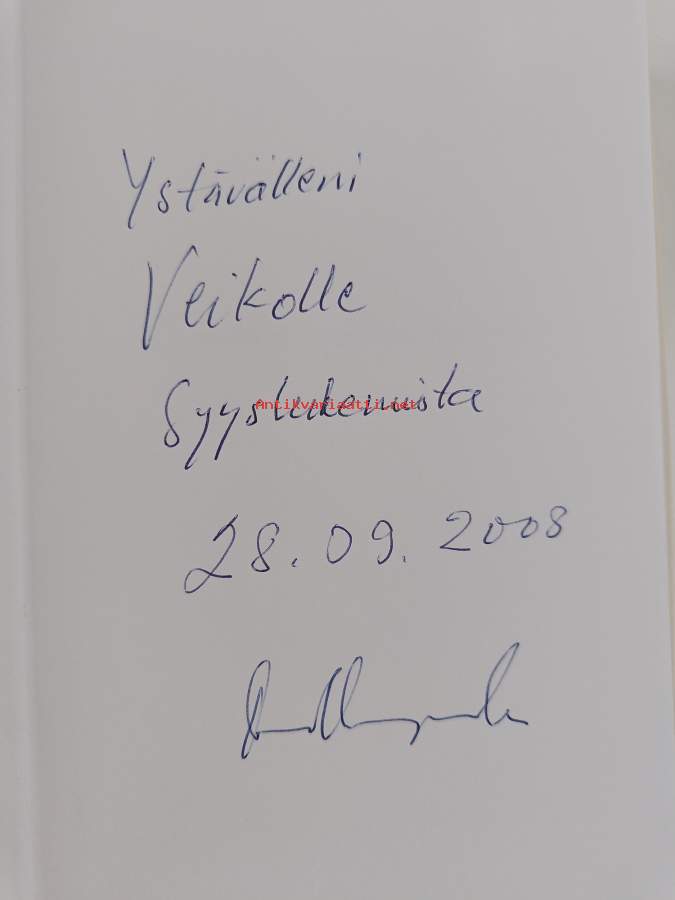 Ystävälleni
Veikolle
Syyslukemista
Antikvariaatti.net
28.09.2008